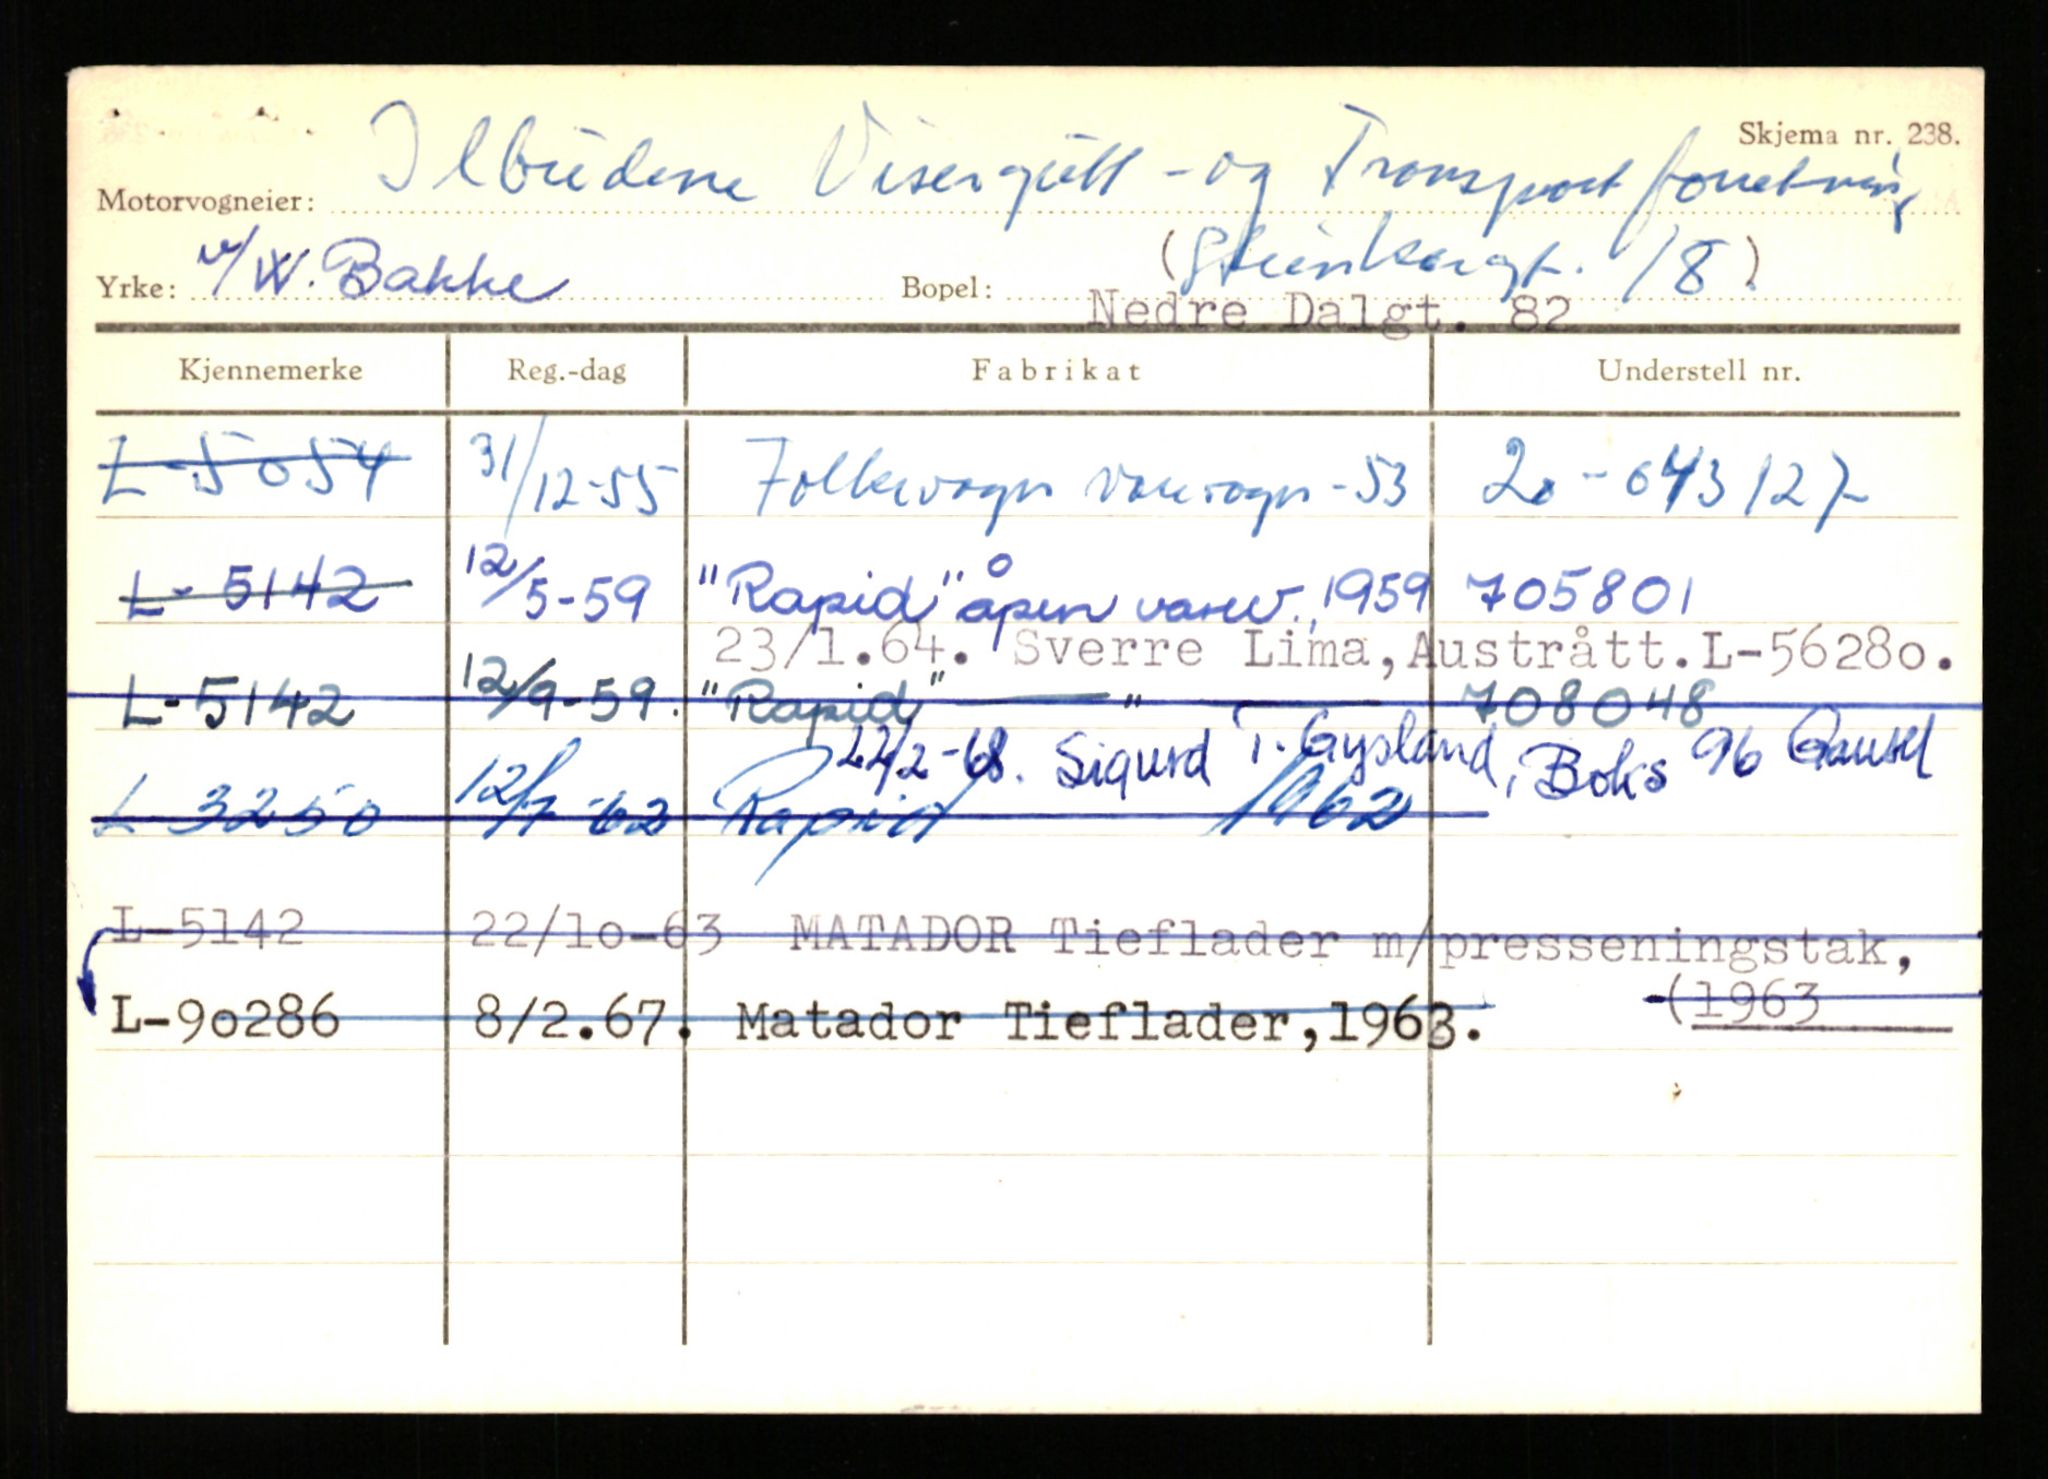 Skjema nr. 238.
Motorvogneier: Ilbudene Visergutt - og Transportforretning
Yrke: v/W. Bakke Bopel: (Steinkargt. 18)
Nedre Dalgt. 82
Kjennemerke Reg.-dag Fabrikat Understell nr.
L-5054 31/12-55 Folkevogn varevogn -53 20-043127
L-5142 12/5-59 "Rapid" åpen varev., 1959 705801
23/1.64. Sverre Lima, Austrått. L-56280.
L-5142 12/9-59. "Rapid" — " — 708048
22/2-68. Sigurd T. Gysland, Boks 96 Gausel
L 3250 12/7-62 Rapid 1962
L-5142 22/10-63 MATADOR Tieflader m/presseningstak,
(1963
L-90286 8/2.67. Matador Tieflader,1963.